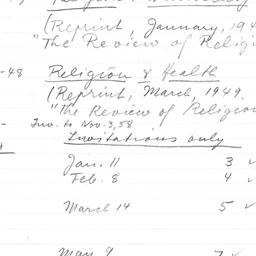 (Reprint, January, 194
"The Review of Religi
-48 Religion & Health
(Reprint, March, 1949.
"The Review of Religion
Inv. to Nov. 3, 58
Invitations only
Jan. 11 3 ✓
Feb. 8 4 ✓
March 14 5 ✓
May 9 7 ✓